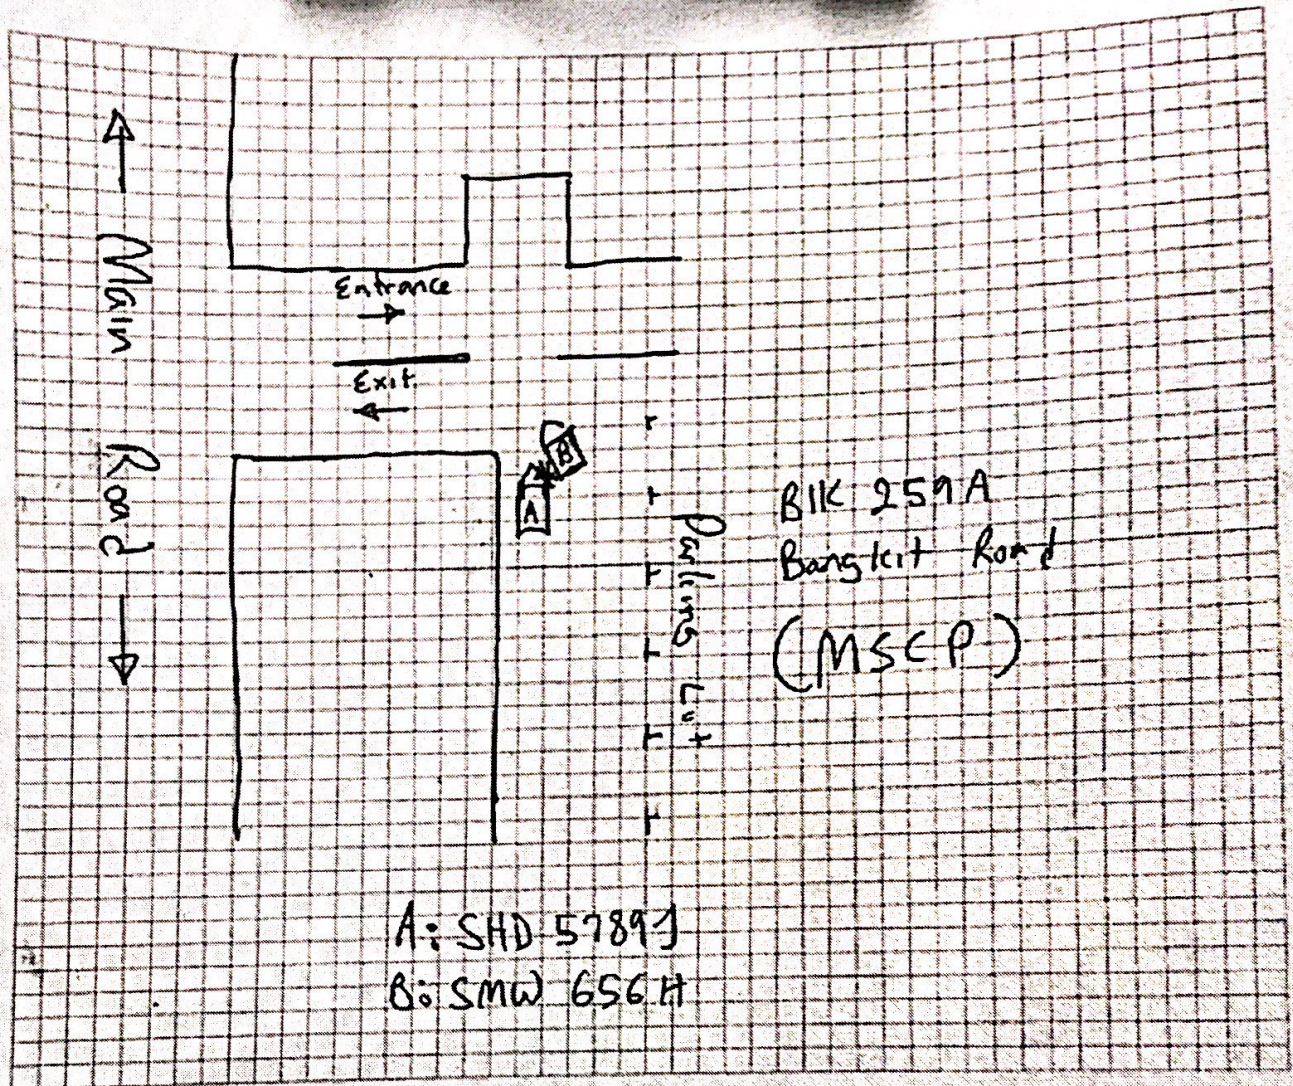 Main Road
Entrance
Exit
B
A
Parking Lot
Blk 259A
Bangkit Road
(MSCP)
A: SHD 5789J
B: SMW 656H